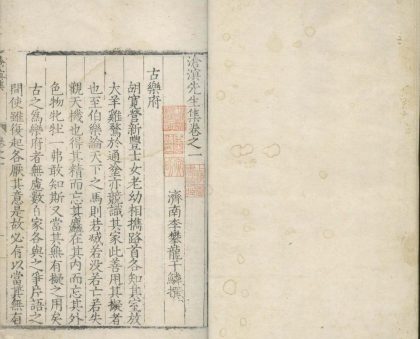 滄溟先生集卷之一
濟南李攀龍于鱗撰
古樂府
胡寬營新豐士女老幼相携路首各知其室放
犬羊雞鶩於通塗亦競識其家此善用其擬者
也至伯樂論天下之馬則若滅若没若亡若失
觀天機也得其精而忘其麤在其內而忘其外
色物牝牡一弗敢知斯又當其無有擬之用矣
古之爲樂府者無慮數百家各與之爭片語之
間使雖復起各厭其意是故必有以當其無有